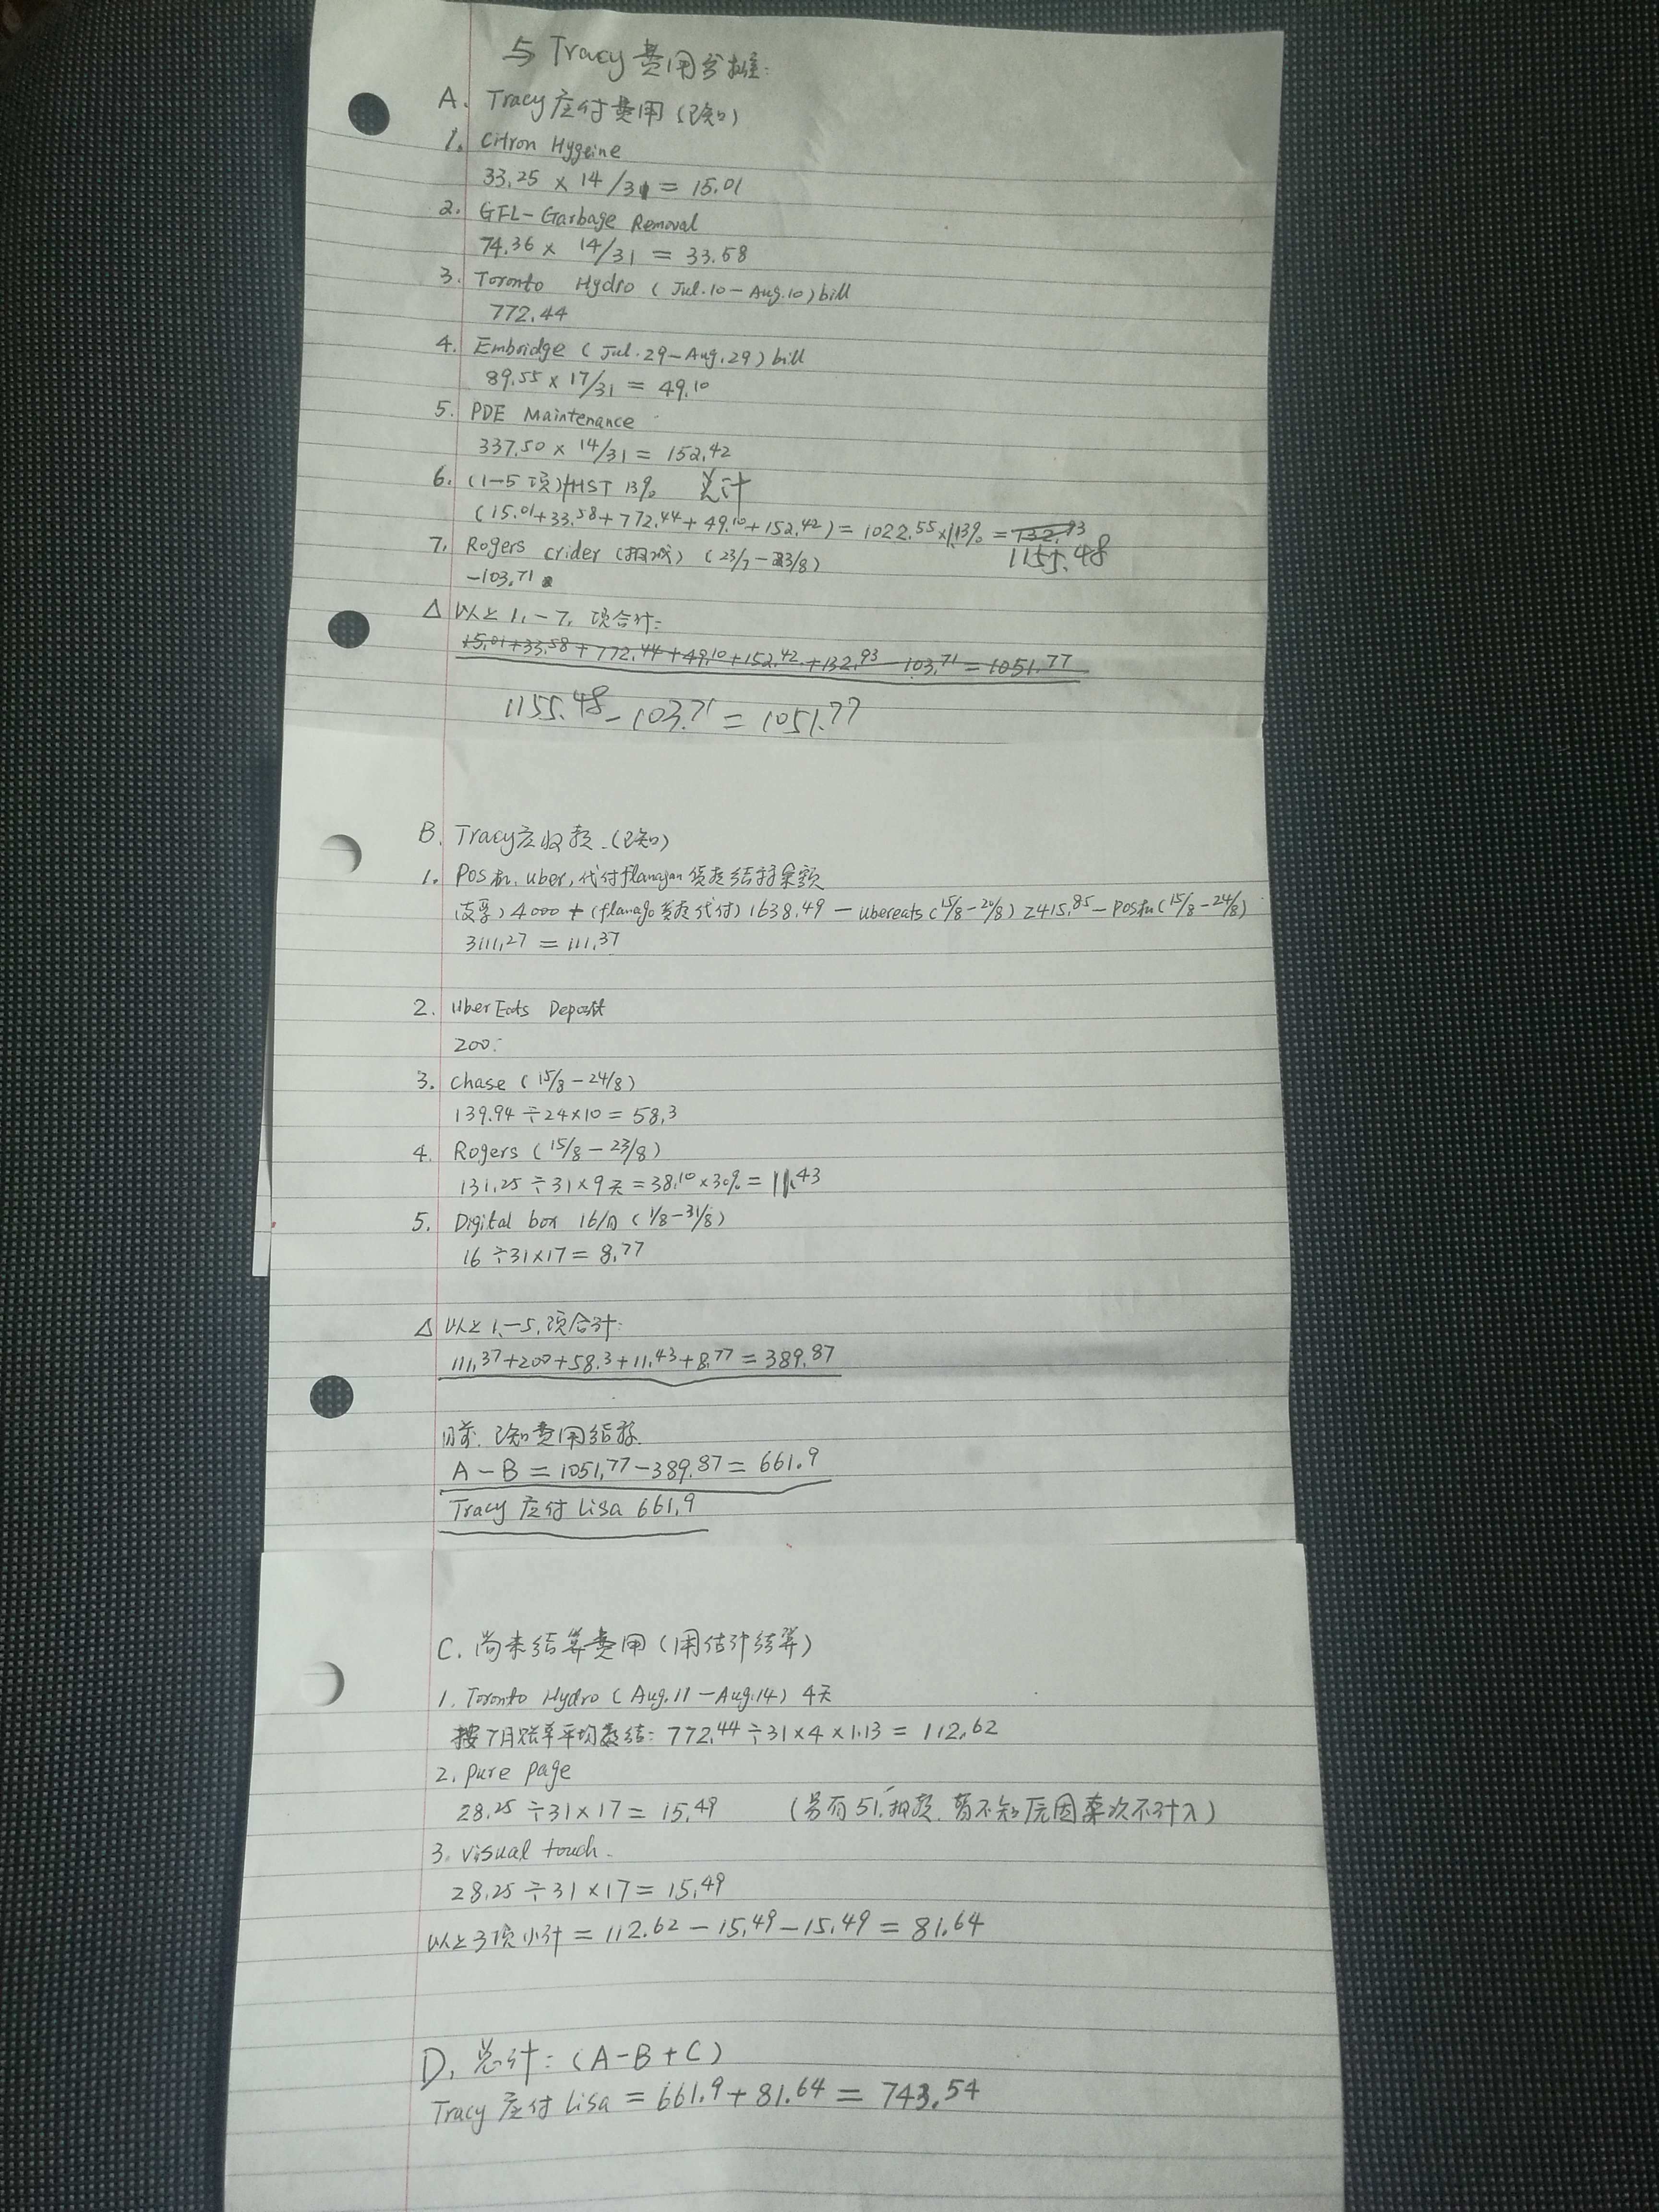 与 Tracy 费用分摊:
A. Tracy 应付费用 (已知)
1. Citron Hygeine
33.25 × 14/31 = 15.01
2. GFL-Garbage Removal
74.36 × 14/31 = 33.58
3. Toronto Hydro ( Jul.10-Aug.10) bill
772.44
4. Embridge ( Jul.29-Aug.29) bill
89.55 × 17/31 = 49.10
5. PDE Maintenance
337.50 × 14/31 = 152.42
6. (1-5项)HST 13% 总计
(15.01+33.58+772.44+49.10+152.42) = 1022.55×113% = 132.93
1155.48
7. Rogers crider (扣减) (23/7-23/8)
-103.71
△ 以上 1.-7. 项合计:
15.01+33.58+772.44+49.10+152.42+132.93-103.71=1051.77
1155.48-103.71=1051.77
B. Tracy应收款.(已知)
1. POS机.uber,代付flanagan货款结算余额
4000+(flanago货款代付)1638.49-ubereats(15/8-20/8)2415.85-POS机(15/8-24/8)
3111.27=111.37
2. UberEats Deposit
200.
3. Chase (15/8-24/8)
139.94÷24×10=58.3
4. Rogers (15/8-23/8)
131.25÷31×9天=38.10×30%=11.43
5. Digital box 16/月(1/8-31/8)
16÷31×17=8.77
△ 以上1.-5.项合计:
111.37+200+58.3+11.43+8.77=389.87
目前.已知费用结算
A-B=1051.77-389.87=661.9
Tracy 应付 Lisa 661.9
C. 尚未结算费用(用估计结算)
1. Toronto Hydro (Aug.11-Aug.14) 4天
按7月账单平均数结: 772.44÷31×4×1.13=112.62
2. Pure page
28.25÷31×17=15.49 (另有51.扣款.暂不知原因本次不计入)
3. Visual touch.
28.25÷31×17=15.49
以上3项小计=112.62-15.49-15.49=81.64
D. 总计: (A-B+C)
Tracy 应付 Lisa = 661.9+81.64=743.54